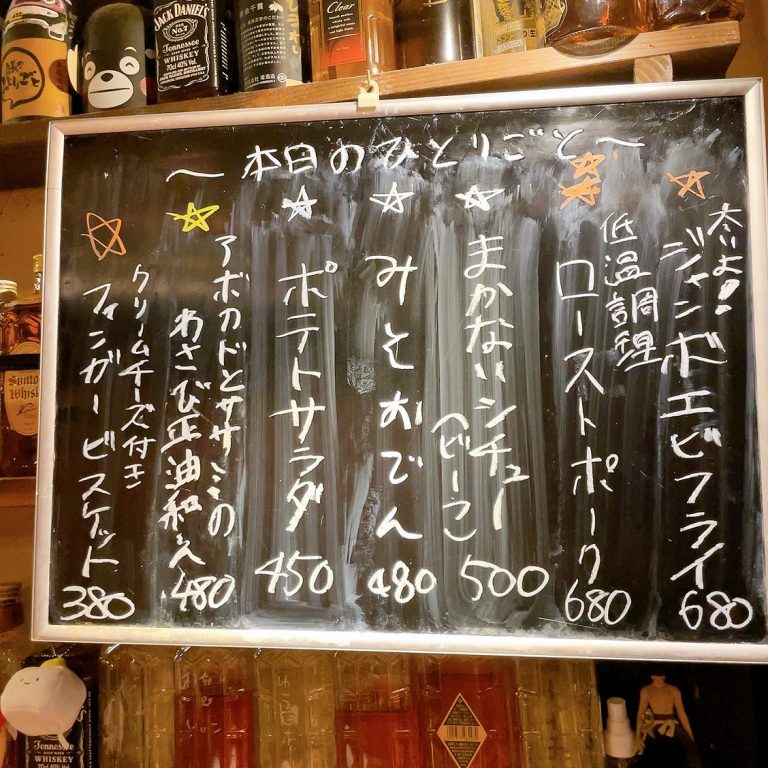 〜本日のひとりごと〜
太いよ!
ジャンボエビフライ
680
低温調理
ローストポーク
680
まかないシチュー
(ビーフ)
500
みそおでん
480
ポテトサラダ
450
アボカドとササミの
わさび正油和え
480
クリームチーズ付き
フィンガービスケット
380
JACK DANIEL'S
No.7
Tennessee
WHISKEY
70cl 40% Vol.
Clear
Tennessee
WHISKEY